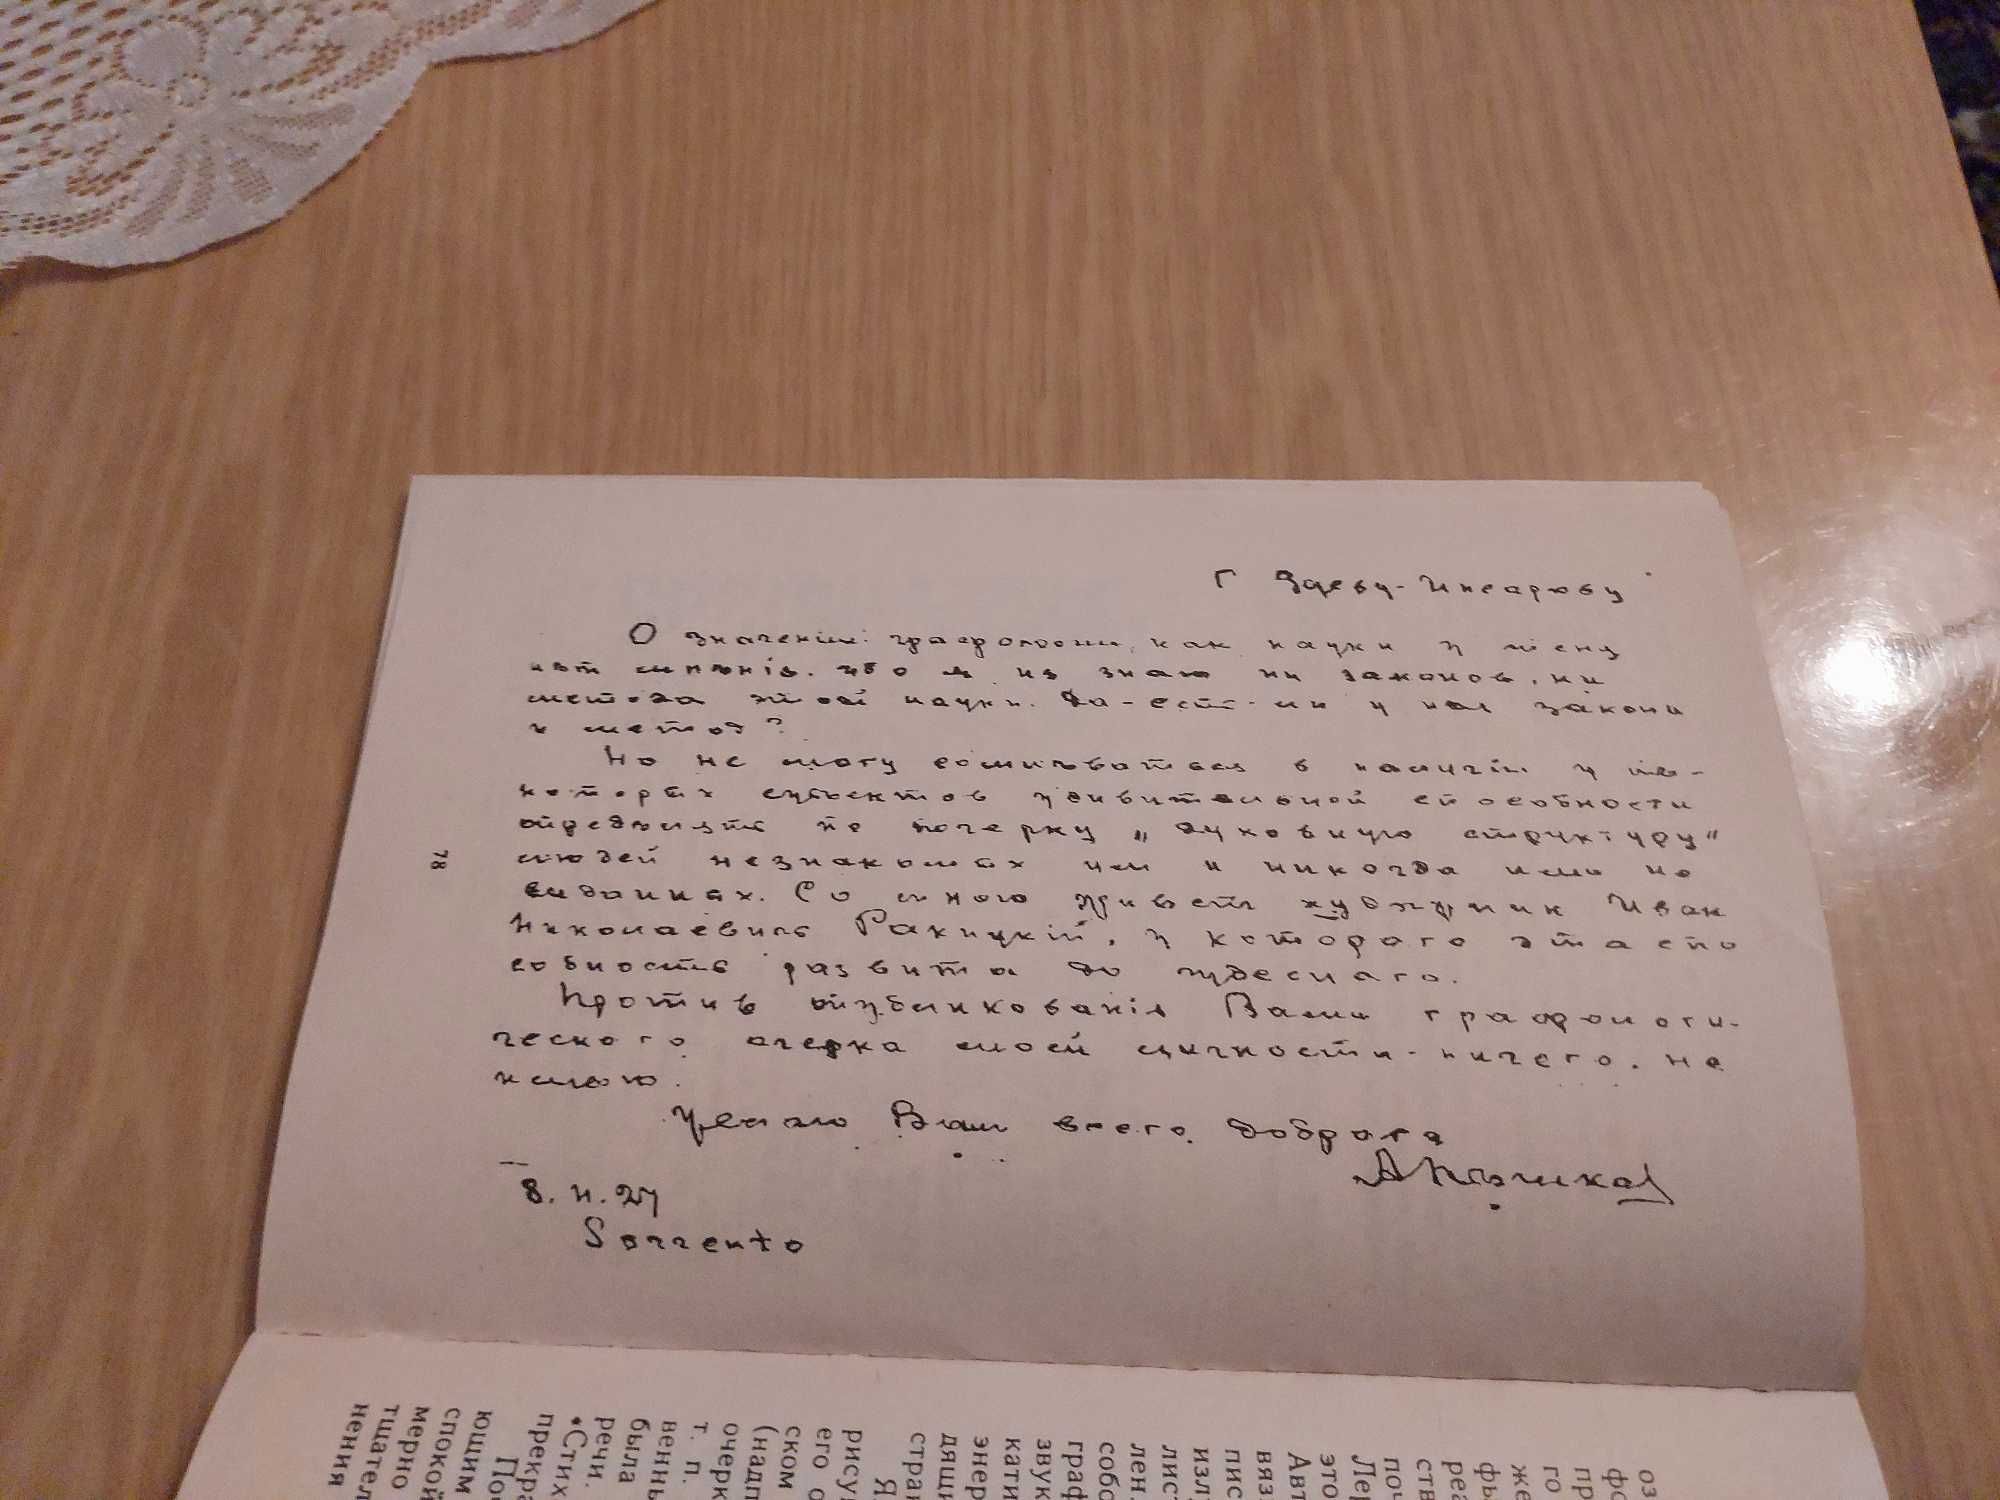 Г Зуеву-Инсарову
О значении графологии, как науки у меня
нет мнения, ибо я не знаю ни законов, ни
метода этой науки. Да - есть-ли у нея законы
и метод?
Но не могу сомневаться в наличии у не-
которых субъектов удивительной способности
определять по почерку „духовную структуру“
людей незнакомых им и никогда ими не
виданных. Со мною живет художник Иван
Николаевич Ракицкий, у которого эта спо
собность развита до чудесного.
Против опубликования Вами графологи-
ческого очерка моей личности - ничего, не
имею.
Желаю Вам всего доброго
А Пешков
8. II. 27
Sorrento
78
оз
фо
пр
го
же
фь
ре
ств
поч
Лер
это
Авт
вяз
пис
изл
лис
лен
собо
граф
звук
кати
энер
дящи
стран
Я.
рисун
его о
ском
(надп
очерк
т. п.
венны
была
речи.
«Стих
прекра
Поч
ющим
спокой
мерно
тщател
нения